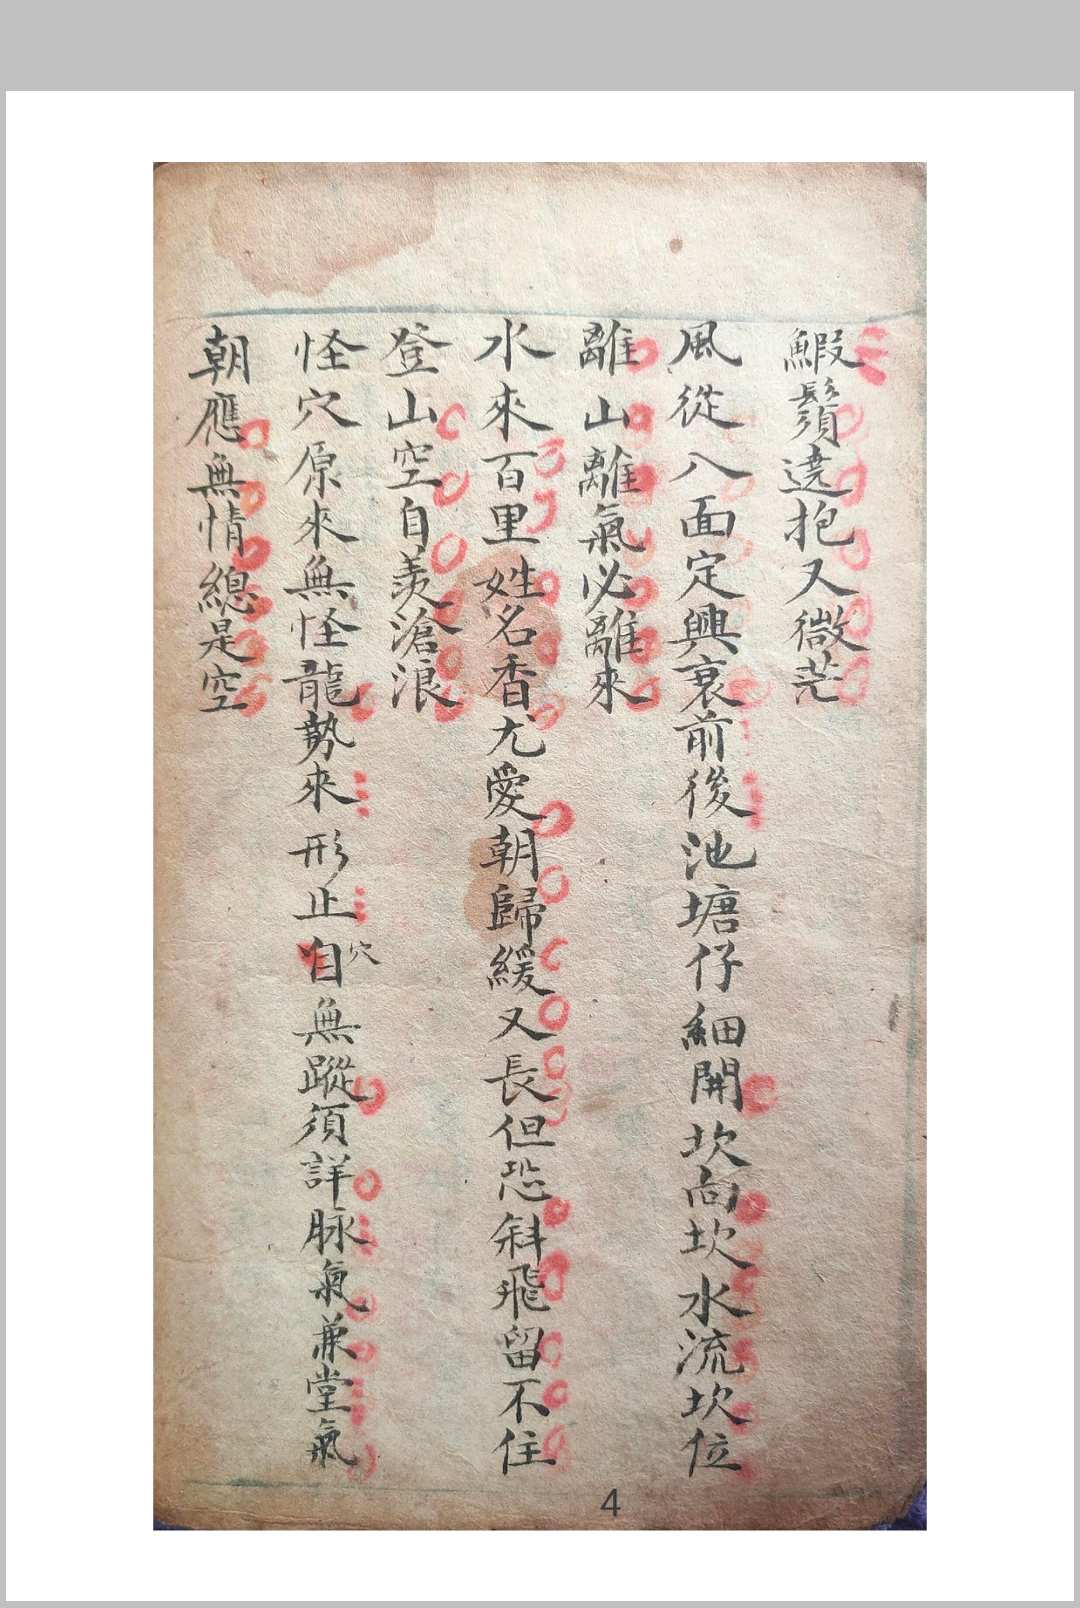 鰕鬚遶抱又微茫
風從八面定興衰前後池塘仔細開坎向坎水流坎位
離山離氣必離來
水來百里姓名香尤愛朝歸緩又長但恐斜飛留不住
登山空自羨滄浪
怪穴原來無怪龍勢來形止自穴無蹤須詳脉氣兼堂氣
朝應無情總是空
4